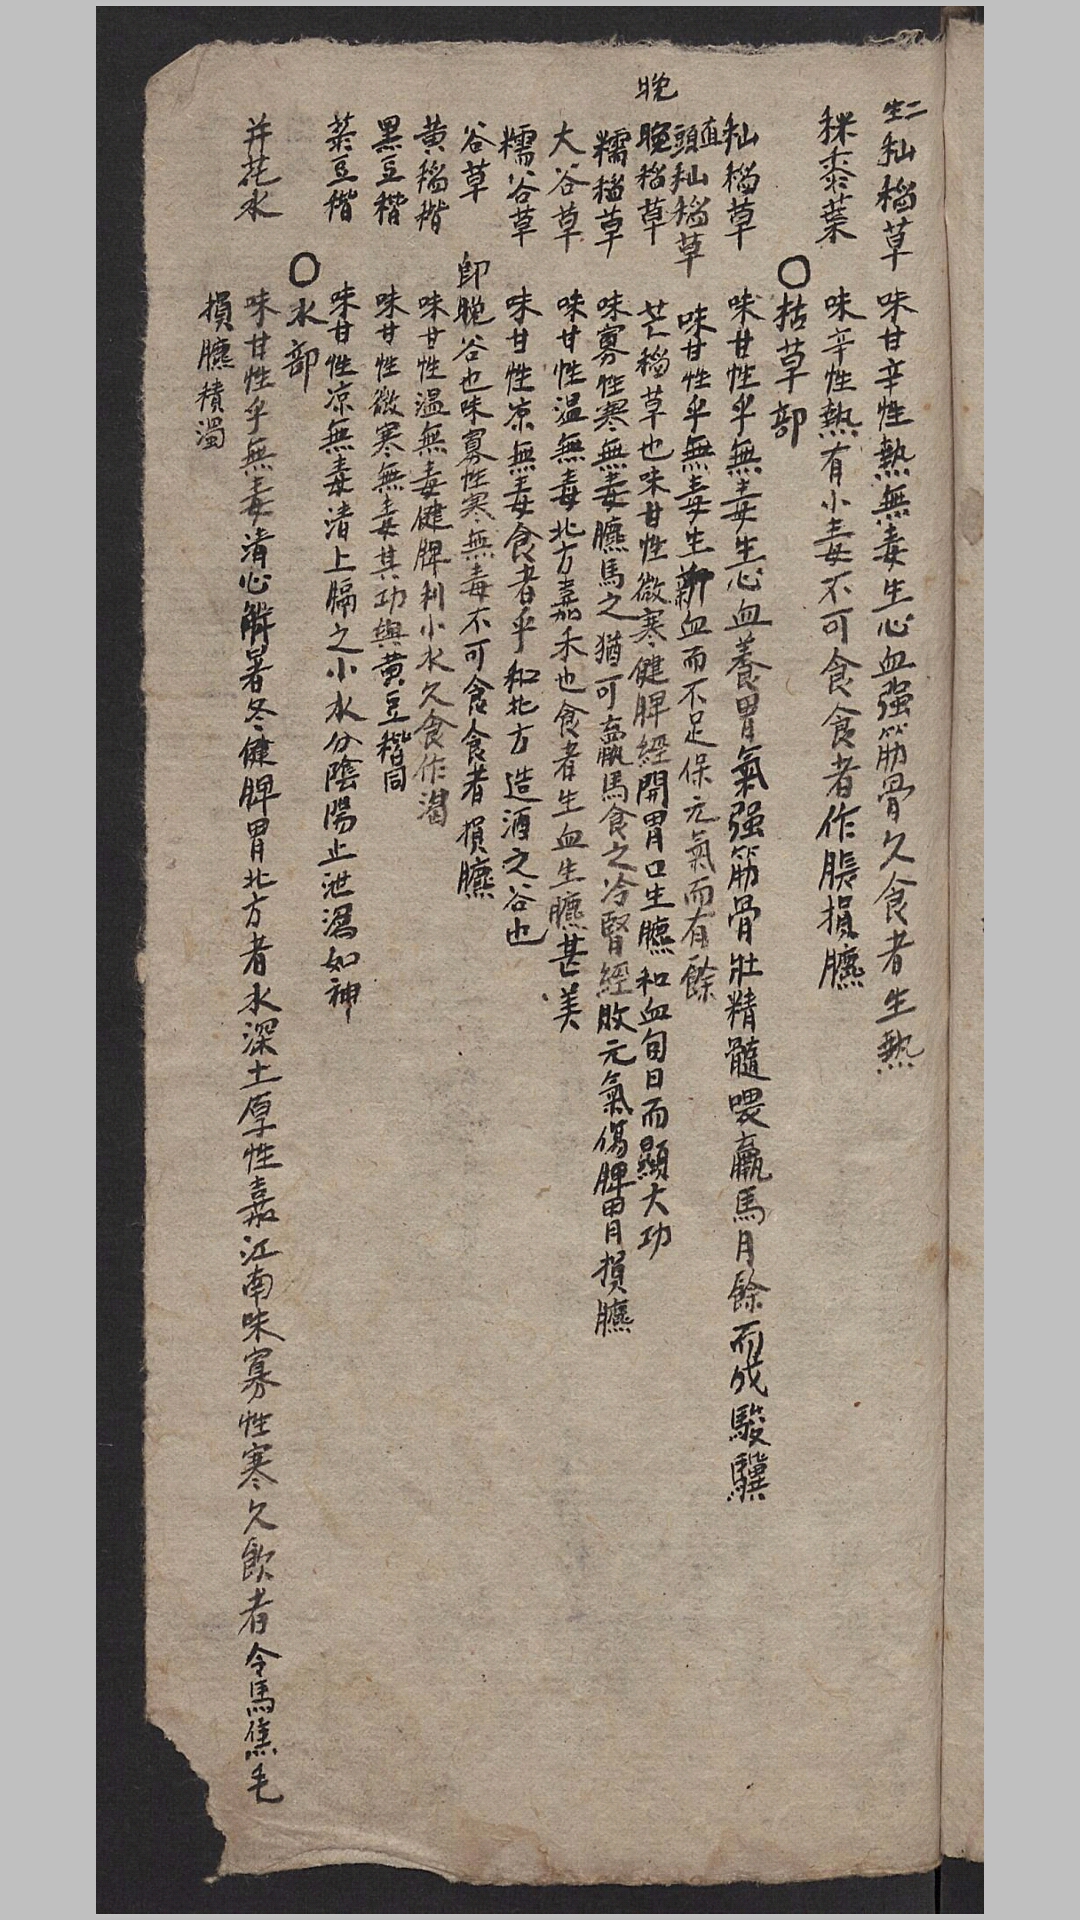 二生秈稻草 味甘辛性熱無毒生心血强筋骨久食者生熱
秣黍葉 味辛性熱有小毒不可食食者作脹損臕
〇枯草部
秈稻草 味甘性平無毒生心血養胃氣强筋骨壯精髓喂羸馬月餘而成駿驥
直頭秈稻草 味甘性平無毒生新血而不足保元氣而有餘
晚
晚稻草 芒稻草也味甘性微寒健脾經開胃口生臕和血旬日而顯大功
糯稻草 味寡性寒無毒臕馬之猶可羸馬食之冷腎經敗元氣傷脾胃損臕
大谷草 味甘性温無毒北方嘉禾也食者生血生臕甚美
糯谷草 味甘性凉無毒食者平和北方造酒之谷也
谷草 即晚谷也味寡性寒無毒不可食食者損臕
黄稻稭 味甘性温無毒健脾利小水久食作渴
黑豆稭 味甘性微寒無毒其功與黄豆稭同
菉豆稭 味甘性凉無毒清上膈之小水分陰陽止泄瀉如神
〇水部
井花水 味甘性平無毒清心解暑冬健脾胃北方者水深土厚性嘉江南味寡性寒久飲者令馬焦毛
損臕積濁